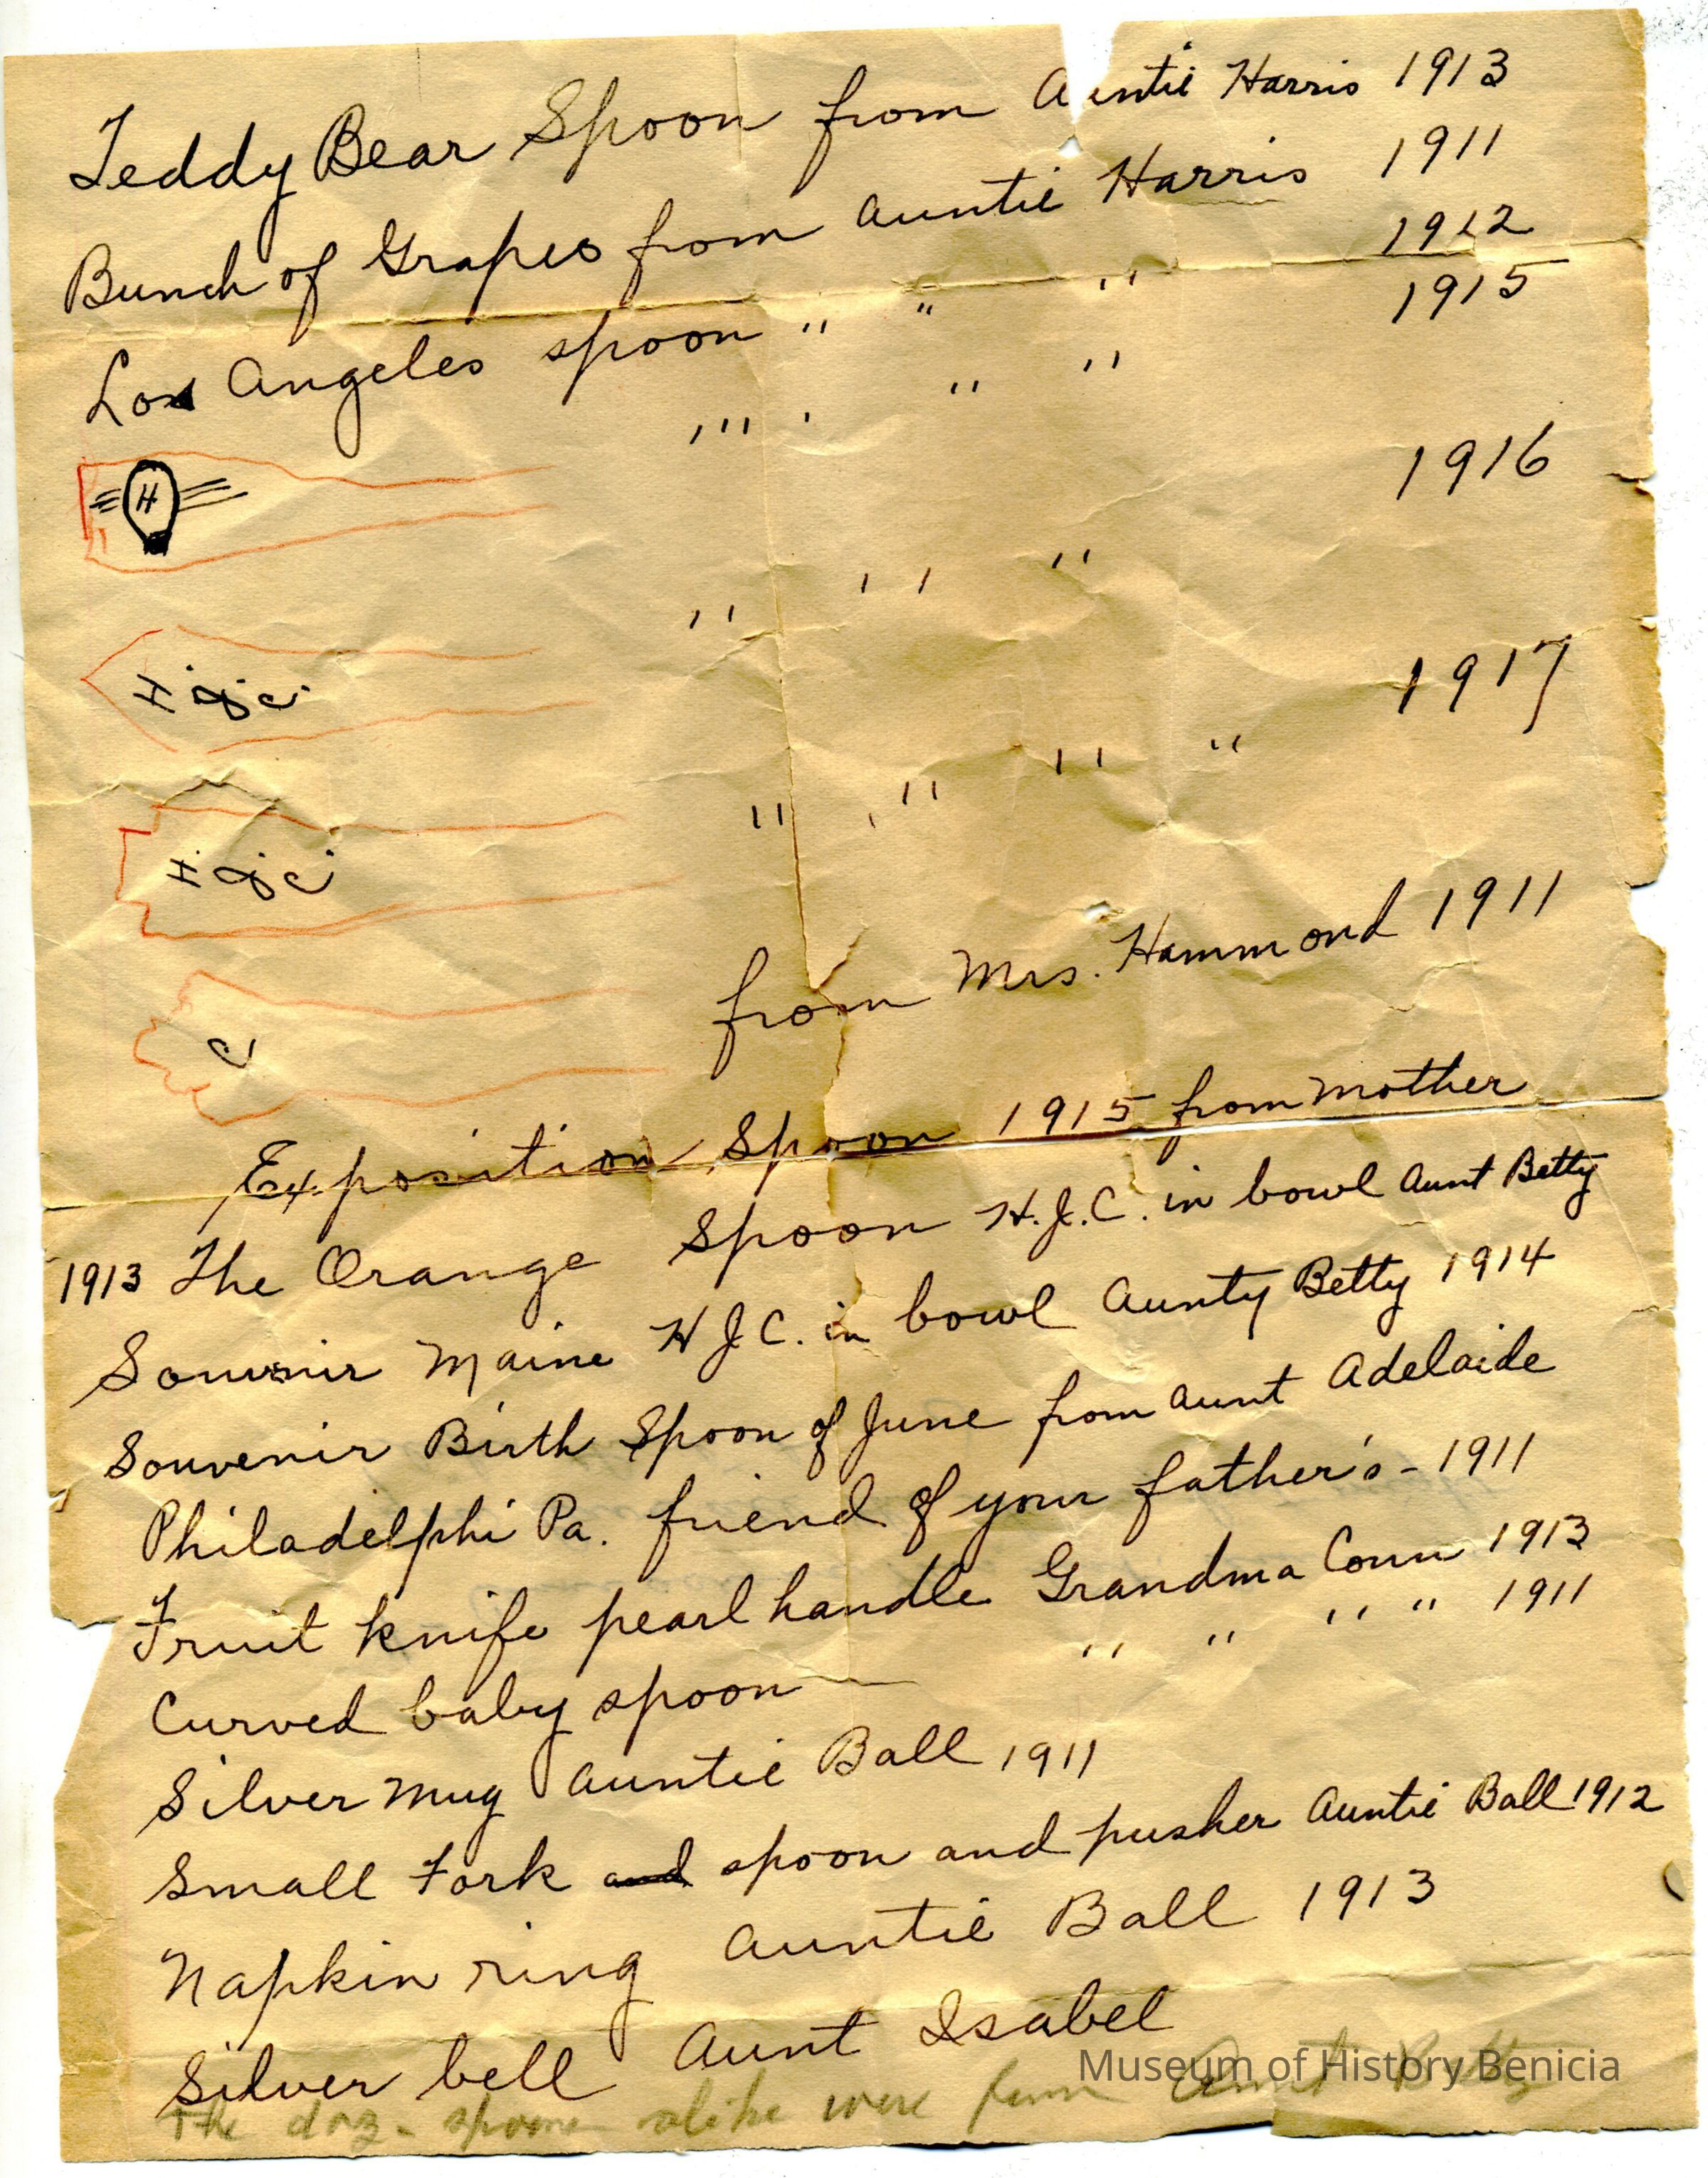 Teddy Bear Spoon from Auntie Harris 1913
Bunch of Grapes from Auntie Harris 1911
Los Angeles spoon " " " 1912
" ' " " 1915
H
" " " 1916
H.J.C.
" " " " 1917
H.J.C.
C from Mrs. Hammond 1911
Exposition Spoon 1915 from Mother
1913 The Orange Spoon H.J.C. in bowl Aunt Betty
Souvenir Maine H J C. in bowl Aunty Betty 1914
Souvenir Birth Spoon of June from Aunt Adelaide
Philadelphi Pa. friend of your father's - 1911
Fruit knife pearl handle Grandma Conn 1913
Curved baby spoon " " " " 1911
Silver Mug Auntie Ball 1911
Small Fork and spoon and pusher Auntie Ball 1912
Napkin ring Auntie Ball 1913
Silver bell Aunt Isabel
The doz. spoons alike were from Aunt Betty
Museum of History Benicia